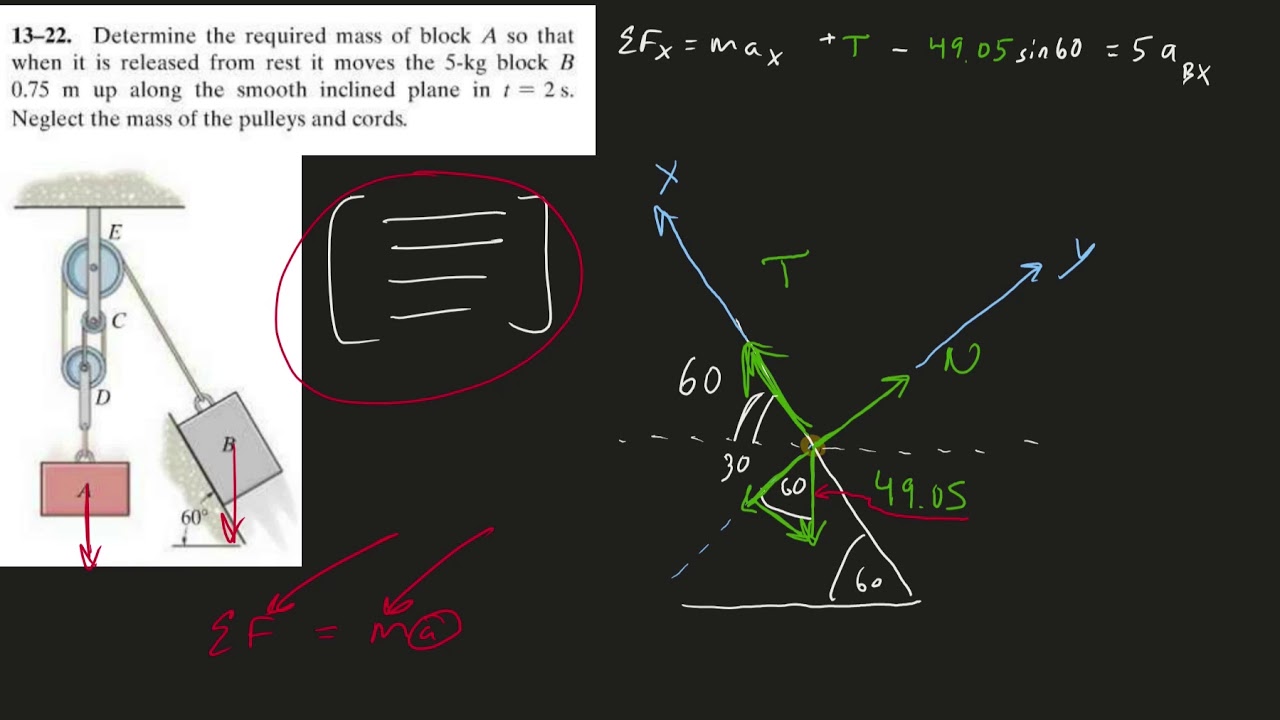 13–22. Determine the required mass of block A so that
when it is released from rest it moves the 5-kg block B
0.75 m up along the smooth inclined plane in t = 2 s.
Neglect the mass of the pulleys and cords.
ΣFx = max +T - 49.05 sin60 = 5 aBX
E
C
D
B
A
60°
X
y
T
N
60
30
60
49.05
60
ΣF = ma